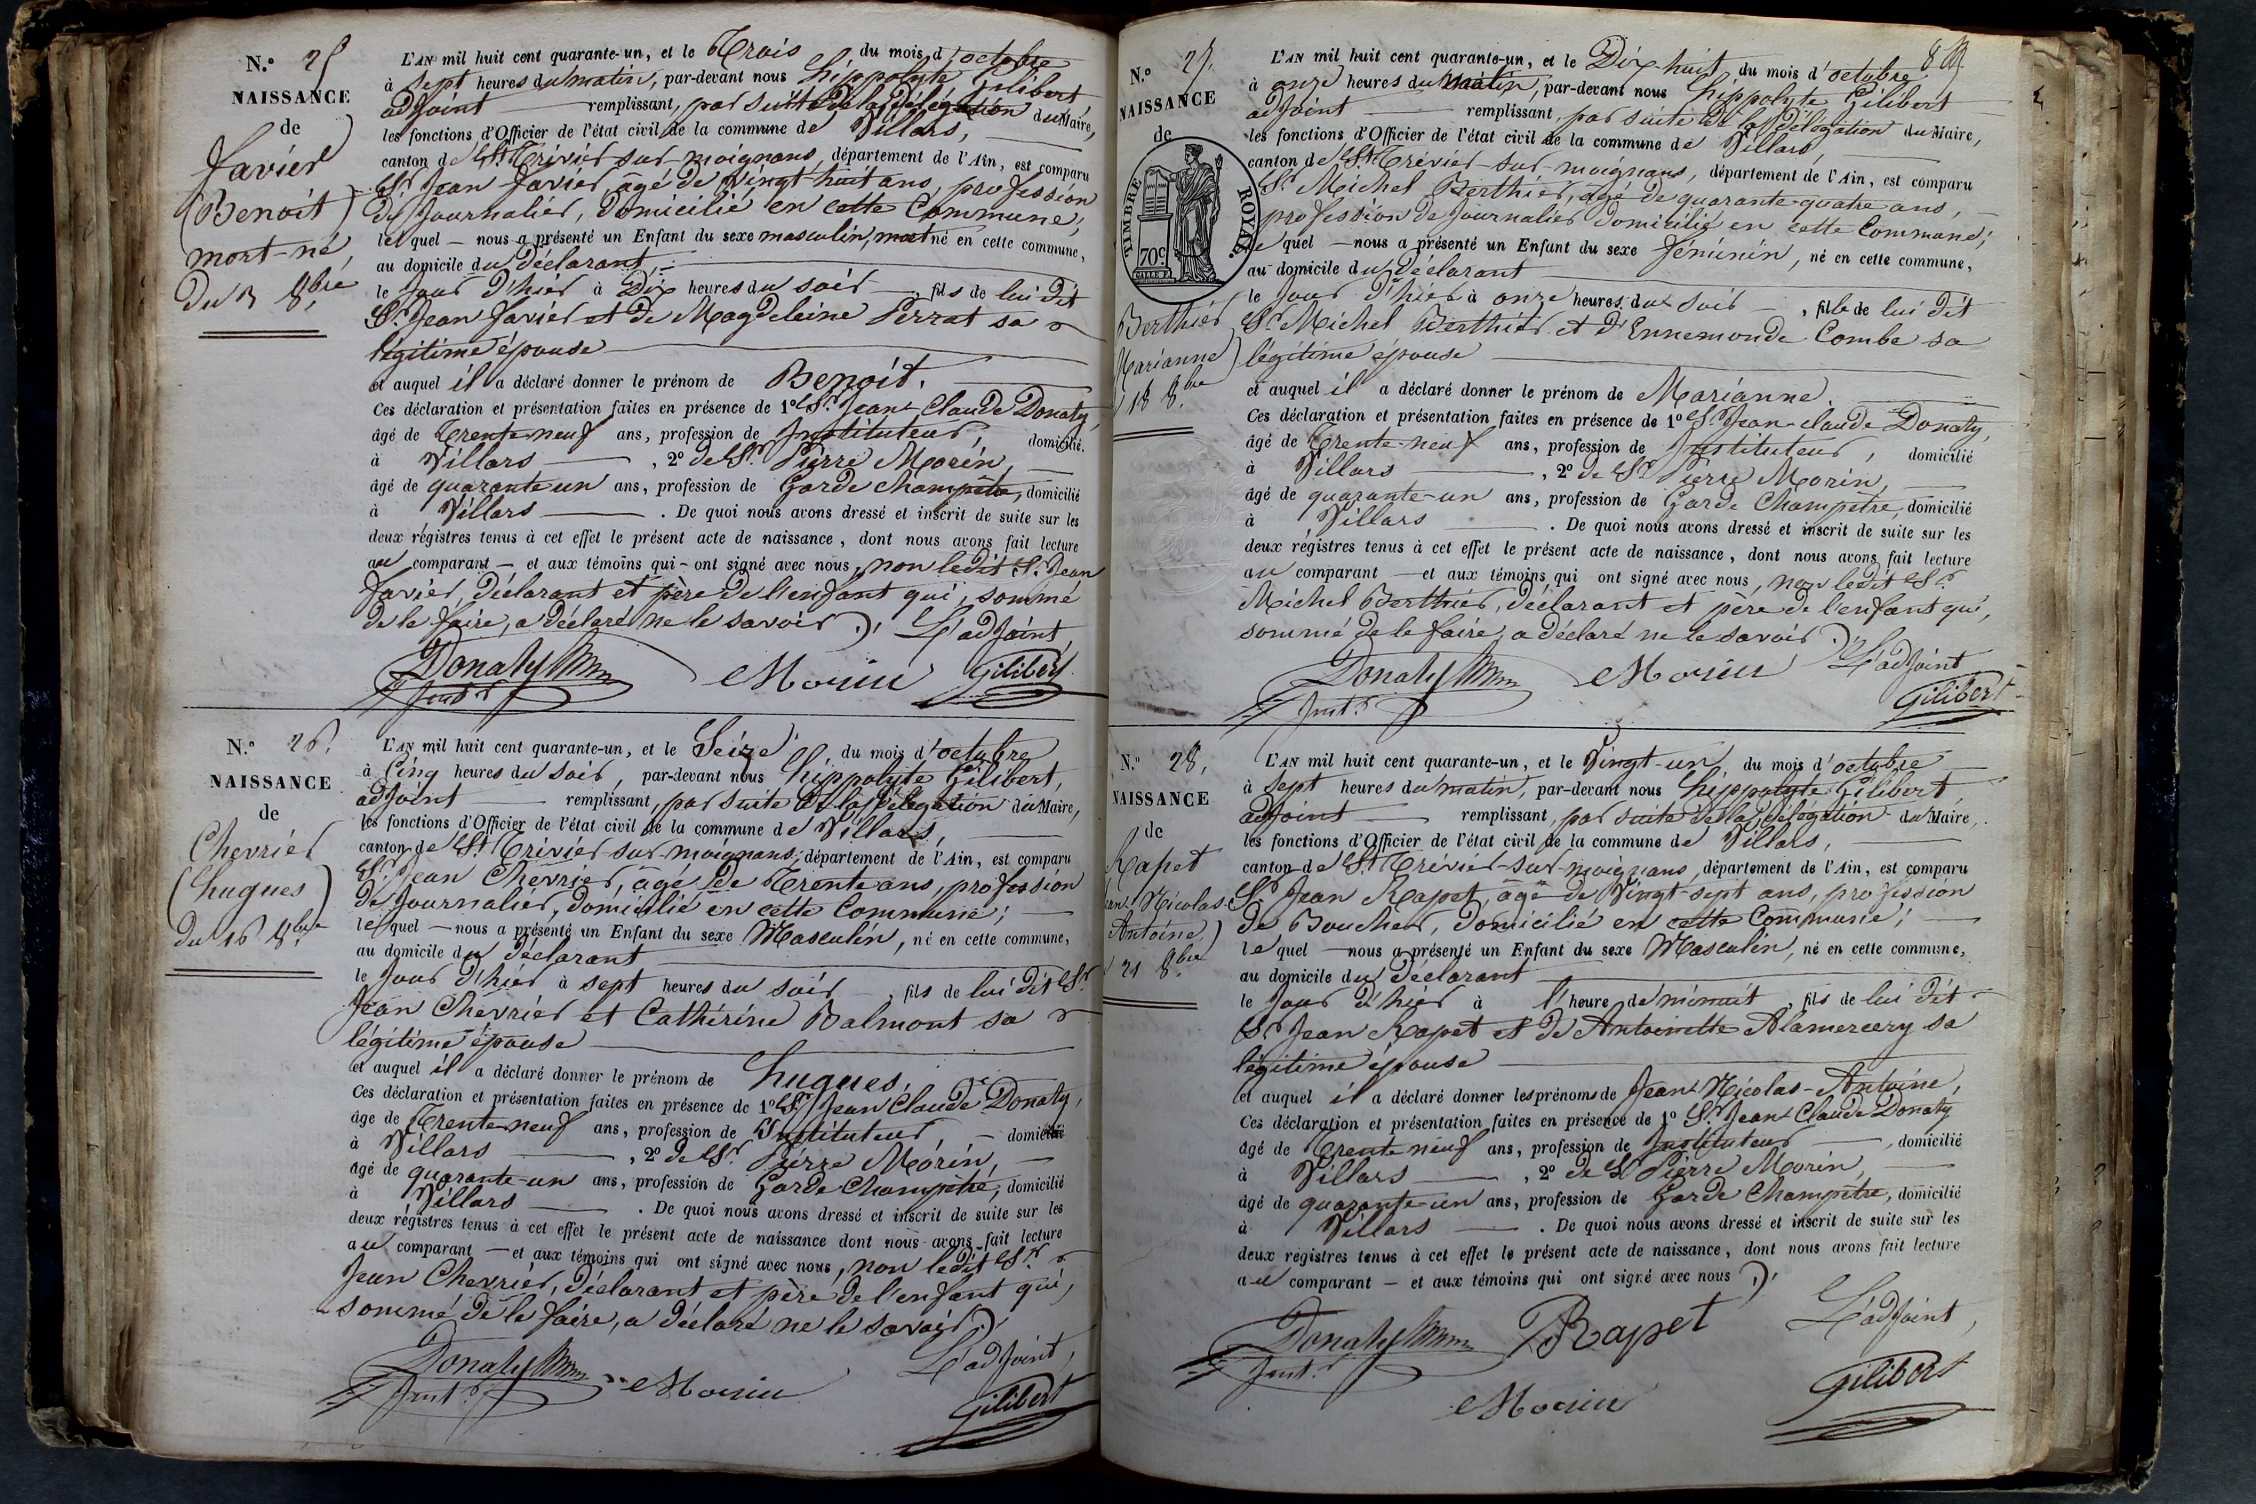 N.o 25
NAISSANCE
de
Javier
(Benoit)
mort-né,
du 3 8bre
L'AN mil huit cent quarante-un, et le Trois du mois d'octobre
à sept heures du matin, par-devant nous hippolyte Gilibert
adjoint remplissant, par suite de la délégation du Maire,
les fonctions d'Officier de l'état civil de la commune de Villars,
canton de St Trivier sur moignans, département de l'Ain, est comparu
Sr Jean Javier, âgé de vingt huit ans, profession
de Journalier, domicilié en cette Commune;
lequel — nous a présenté un Enfant du sexe masculin, mort né en cette commune,
au domicile du déclarant
le jour d'hier à Dix heures du soir, fils de lui dit
Sr Jean Javier et de Magdeleine Perrat sa
légitime épouse
et auquel il a déclaré donner le prénom de Benoit.
Ces déclaration et présentation faites en présence de 1o Sr Jean-Claude Donaty,
âgé de Trente-neuf ans, profession de Instituteur, domicilié
à Villars, 2o de Sr Pierre Morin,
âgé de quarante un ans, profession de Garde Champêtre, domicilié
à Villars. De quoi nous avons dressé et inscrit de suite sur les
deux régistres tenus à cet effet le présent acte de naissance, dont nous avons fait lecture
au comparant — et aux témoins qui - ont signé avec nous, non ledit Sr Jean
Javier, déclarant et père de l'enfant qui, sommé
de le faire, a déclaré ne le savoir ./. L'adjoint,
Donaty
Instr
Morin
Gilibert
N.o 26.
NAISSANCE
de
Chevrier
(hugues)
du 16 8bre
L'AN mil huit cent quarante-un, et le Seize du mois d'octobre
à Cinq heures du soir, par-devant nous hippolyte Gilibert,
adjoint remplissant, par suite de la délégation du Maire,
les fonctions d'Officier de l'état civil de la commune de Villars,
canton de St Trivier sur-moignans, département de l'Ain, est comparu
Sr Jean Chevrier, âgé de Trente ans, profession
de Journalier, domicilié en cette Commune;
lequel — nous a présenté un Enfant du sexe Masculin, né en cette commune,
au domicile du déclarant
le jour d'hier à sept heures du soir, fils de lui dit Sr
Jean Chevrier et Cathérine Balmont sa
légitime épouse
et auquel il a déclaré donner le prénom de hugues.
Ces déclaration et présentation faites en présence de 1o Sr Jean Claude Donaty,
âgé de Trente-neuf ans, profession de Instituteur, domicilié
à Villars, 2o de Sr Pierre Morin,
âgé de quarante-un ans, profession de Garde Champêtre, domicilié
à Villars. De quoi nous avons dressé et inscrit de suite sur les
deux régistres tenus à cet effet le présent acte de naissance dont nous avons fait lecture
au comparant — et aux témoins qui ont signé avec nous, non ledit Sr
Jean Chevrier, déclarant et père de l'enfant qui,
sommé de le faire, a déclaré ne le savoir ./.
L'adjoint,
Donaty
Instr
Morin
Gilibert
N.o 27.
NAISSANCE
de
TIMBRE ROYAL.
70c.
Berthier
Marianne)
18 8bre
L'AN mil huit cent quarante-un, et le Dix huit du mois d'octobre
à onze heures du matin, par-devant nous hippolyte Gilibert
adjoint remplissant, par suite de la délégation du Maire,
les fonctions d'Officier de l'état civil de la commune de Villars,
canton de St Trivier-sur moignans, département de l'Ain, est comparu
Sr Michel Berthier, âgé de quarante-quatre ans,
profession de Journalier domicilié en cette Commune;
lequel — nous a présenté un Enfant du sexe féminin, né en cette commune,
au domicile du déclarant
le jour d'hier à onze heures du soir, fille de lui dit
Sr Michel Berthier et d'Ennemonde Combe sa
légitime épouse
et auquel il a déclaré donner le prénom de Marianne.
Ces déclaration et présentation faites en présence de 1o Sr Jean-claude Donaty,
âgé de Trente-neuf ans, profession de Instituteur, domicilié
à Villars, 2o de Sr Pierre Morin,
âgé de quarante-un ans, profession de Garde Champêtre, domicilié
à Villars. De quoi nous avons dressé et inscrit de suite sur les
deux régistres tenus à cet effet le présent acte de naissance, dont nous avons fait lecture
au comparant — et aux témoins qui ont signé avec nous, non ledit Sr
Michel Berthier, déclarant et père de l'enfant qui,
sommé de le faire, a déclaré ne le savoir ./.
L'adjoint
Donaty
Instr
Morin
Gilibert
N.o 28.
NAISSANCE
de
Rapet
Jean Nicolas
Antoine)
21 8bre
L'AN mil huit cent quarante-un, et le Vingt-un du mois d'octobre
à sept heures du matin, par-devant nous hippolyte Gilibert
adjoint remplissant, par suite de la délégation du Maire,
les fonctions d'Officier de l'état civil de la commune de Villars,
canton de St Trivier-sur-moignans, département de l'Ain, est comparu
Sr Jean Rapet, âgé de Vingt-sept ans, profession
de Boucher, domicilié en cette Commune;
lequel — nous a présenté un Enfant du sexe Masculin, né en cette commune,
au domicile du déclarant
le jour d'hier à l'heure de minuit, fils de lui dit
Sr Jean Rapet et de Antoinette Alamercery sa
légitime épouse
et auquel il a déclaré donner les prénoms de Jean-Nicolas-Antoine,
Ces déclaration et présentation faites en présence de 1o Sr Jean Claude Donaty
âgé de Trente neuf ans, profession de Instituteur, domicilié
à Villars, 2o de Sr Pierre Morin,
âgé de quarante-un ans, profession de Garde Champêtre, domicilié
à Villars. De quoi nous avons dressé et inscrit de suite sur les
deux régistres tenus à cet effet le présent acte de naissance, dont nous avons fait lecture
au comparant — et aux témoins qui ont signé avec nous ./.
L'adjoint,
Donaty
Instr
Rapet
Morin
Gilibert